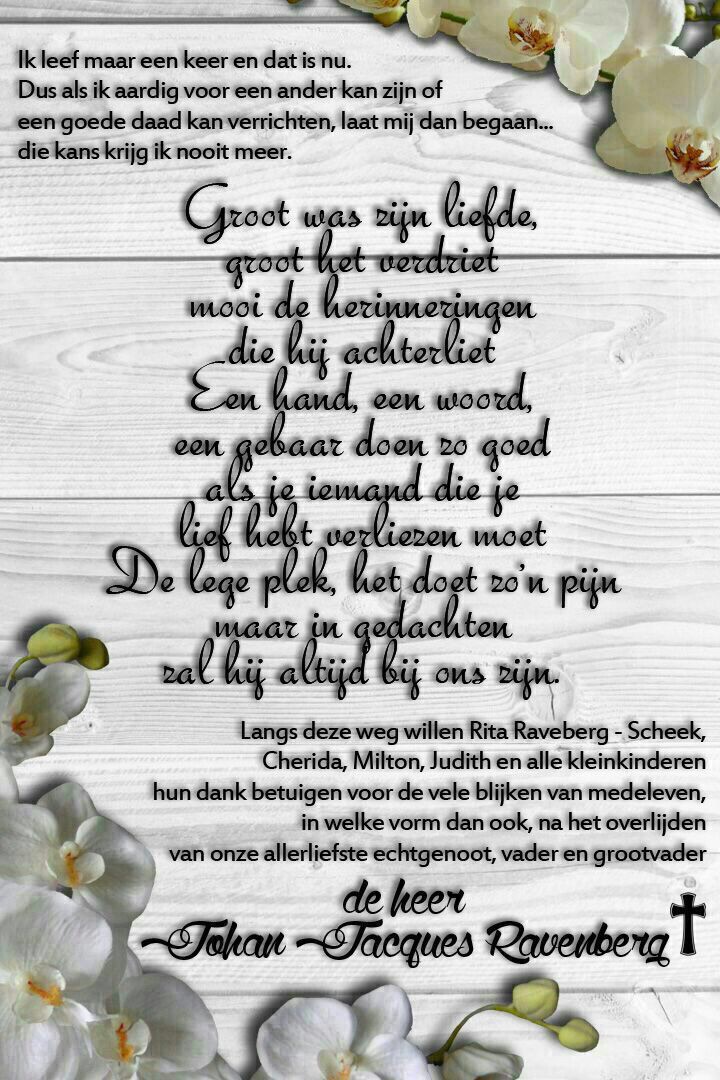 Ik leef maar een keer en dat is nu.
Dus als ik aardig voor een ander kan zijn of
een goede daad kan verrichten, laat mij dan begaan...
die kans krijg ik nooit meer.
Groot was zijn liefde,
groot het verdriet
mooi de herinneringen
die hij achterliet
Een hand, een woord,
een gebaar doen zo goed
als je iemand die je
lief hebt verliezen moet
De lege plek, het doet zo'n pijn
maar in gedachten
zal hij altijd bij ons zijn.
Langs deze weg willen Rita Raveberg - Scheek,
Cherida, Milton, Judith en alle kleinkinderen
hun dank betuigen voor de vele blijken van medeleven,
in welke vorm dan ook, na het overlijden
van onze allerliefste echtgenoot, vader en grootvader
de heer
Johan Jacques Ravenberg